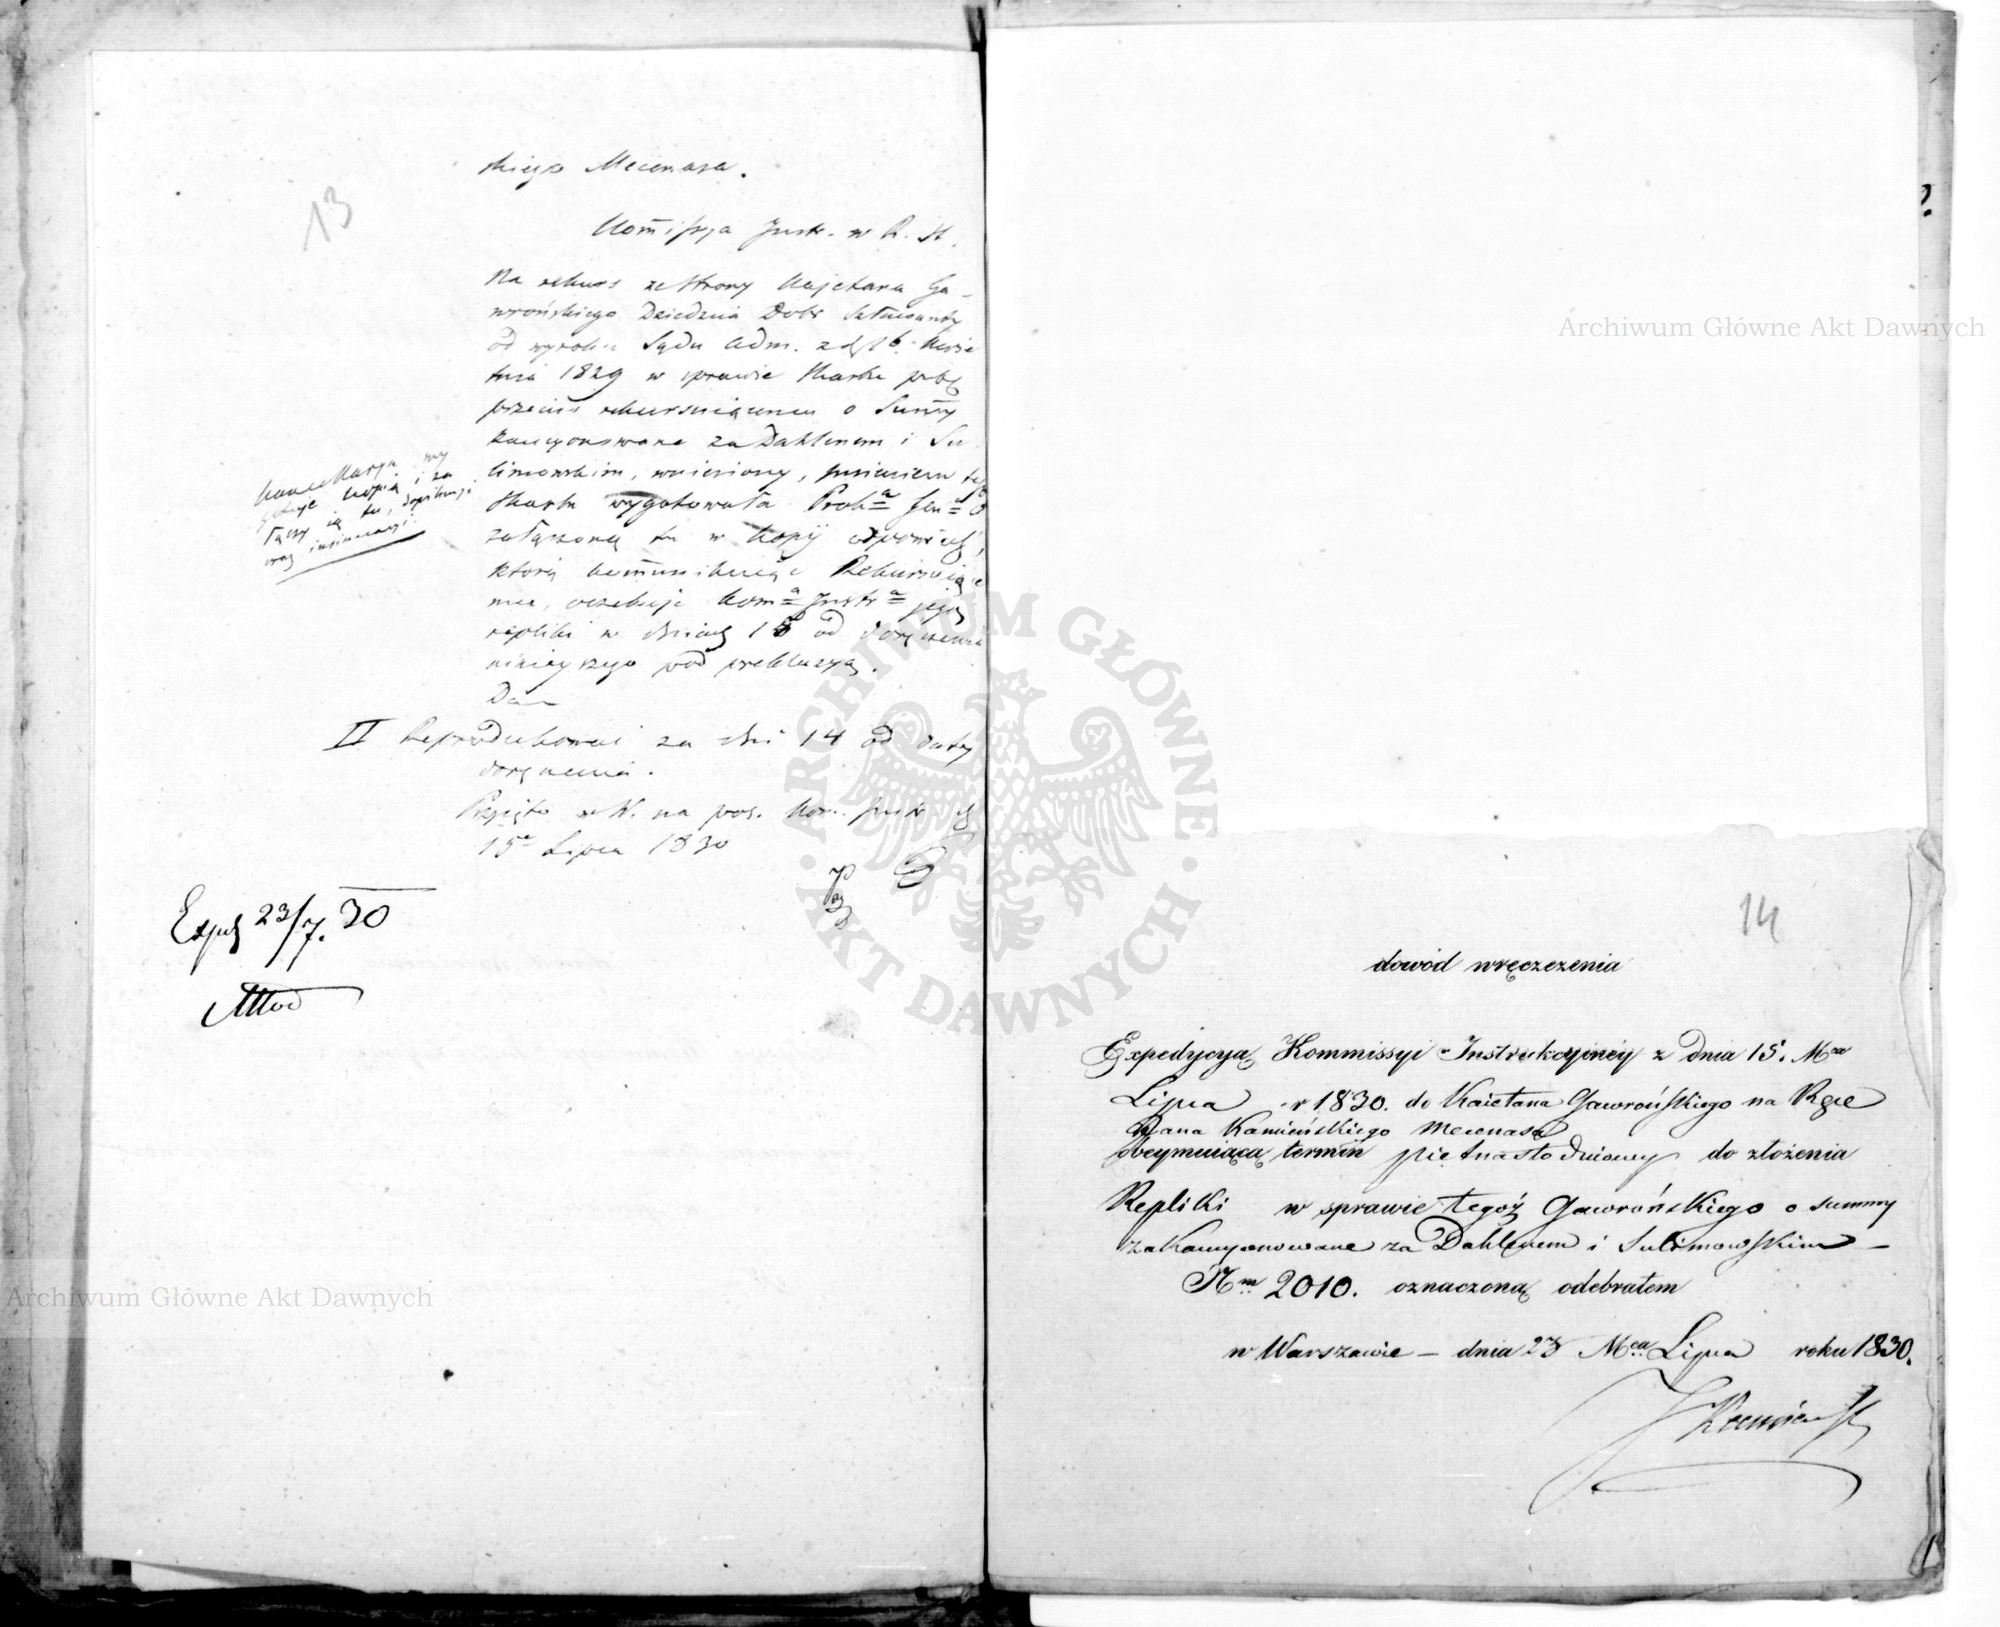 13
skiego Mecenasa.
Kom̅issya Instr. w R. St.
Na rekurs ze strony Kajetana Ga-
wrońskiego Dziedzica Dobr
od wyroku Sądu Adm. z d. 16. Kwie
tnia 1829 w sprawie Skarbu
przeciw rekursującemu o Sum̅y
kaucyonowane za Dahlenem i Su
limowskim, wniesiony, imieniem
Skarbu wygotowała Prok=a Jen=a
załączoną tu w kopij odpowiedź,
którą kom̅unikując Rekursują
mu, oczekuje Kom=a Instr=a jego
repliki w dniach 15 od doręczenia
ninieyszego pod prekluzyą.
Dan
II Reprodukować za dni 14 od daty
doręczenia.
Przyięto w W. na pos. Kom. Instr.
15o Lipca 1830
Kancellarya wy
gotuje kopią i za
łączy ią tu,
oraz insinuacyi.
Exped 23/7. 30
Archiwum Główne Akt Dawnych
14
dowód wręczenia
Expedycyą Kommissyi Instrukcyinéy z dnia 15. Mca
Lipca r 1830. do Kaietana Gawrońskiego na Ręce
Pana Kamieńskiego Mecenasa
obeymuiącą termin piętnastodniowy do złożenia
Repliki w sprawie tegoż Gawrońskiego o summy
zakaucyonowane za Dahlenem i Sulimowskim —
Nm 2010. oznaczoną odebrałem
w Warszawie — dnia 23 Mca Lipca roku 1830.
Kamieński
Archiwum Główne Akt Dawnych
ARCHIWUM GŁÓWNE · AKT DAWNYCH ·